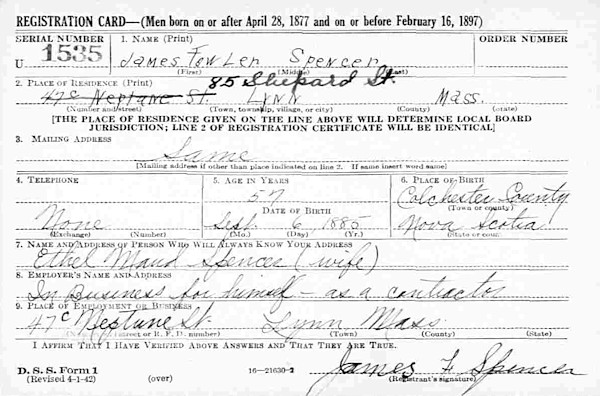 REGISTRATION CARD—(Men born on or after April 28, 1877 and on or before February 16, 1897)
SERIAL NUMBER 1. NAME (Print) ORDER NUMBER
U 1535 James Fowler Spencer
(First) (Middle) (Last)
2. PLACE OF RESIDENCE (Print) 85 Shepard St.
47c Neptune St. Lynn Mass.
(Number and street) (Town, township, village, or city) (County) (State)
[THE PLACE OF RESIDENCE GIVEN ON THE LINE ABOVE WILL DETERMINE LOCAL BOARD
JURISDICTION; LINE 2 OF REGISTRATION CERTIFICATE WILL BE IDENTICAL]
3. MAILING ADDRESS
Same
[Mailing address if other than place indicated on line 2. If same insert word same]
4. TELEPHONE 5. AGE IN YEARS 6. PLACE OF BIRTH
57 Colchester County
DATE OF BIRTH (Town or county)
None Sept. 6 1885 Nova Scotia
(Exchange) (Number) (Mo.) (Day) (Yr.) (State or country)
7. NAME AND ADDRESS OF PERSON WHO WILL ALWAYS KNOW YOUR ADDRESS
Ethel Maud Spencer (wife)
8. EMPLOYER'S NAME AND ADDRESS
In Business for himself - as a contractor
9. PLACE OF EMPLOYMENT OR BUSINESS
47c Neptune St. Lynn Mass
(Number and street or R. F. D. number) (Town) (County) (State)
I AFFIRM THAT I HAVE VERIFIED ABOVE ANSWERS AND THAT THEY ARE TRUE.
D. S. S. Form 1 James F Spencer
(Revised 4-1-42) (over) 16—21630-2 (Registrant's signature)